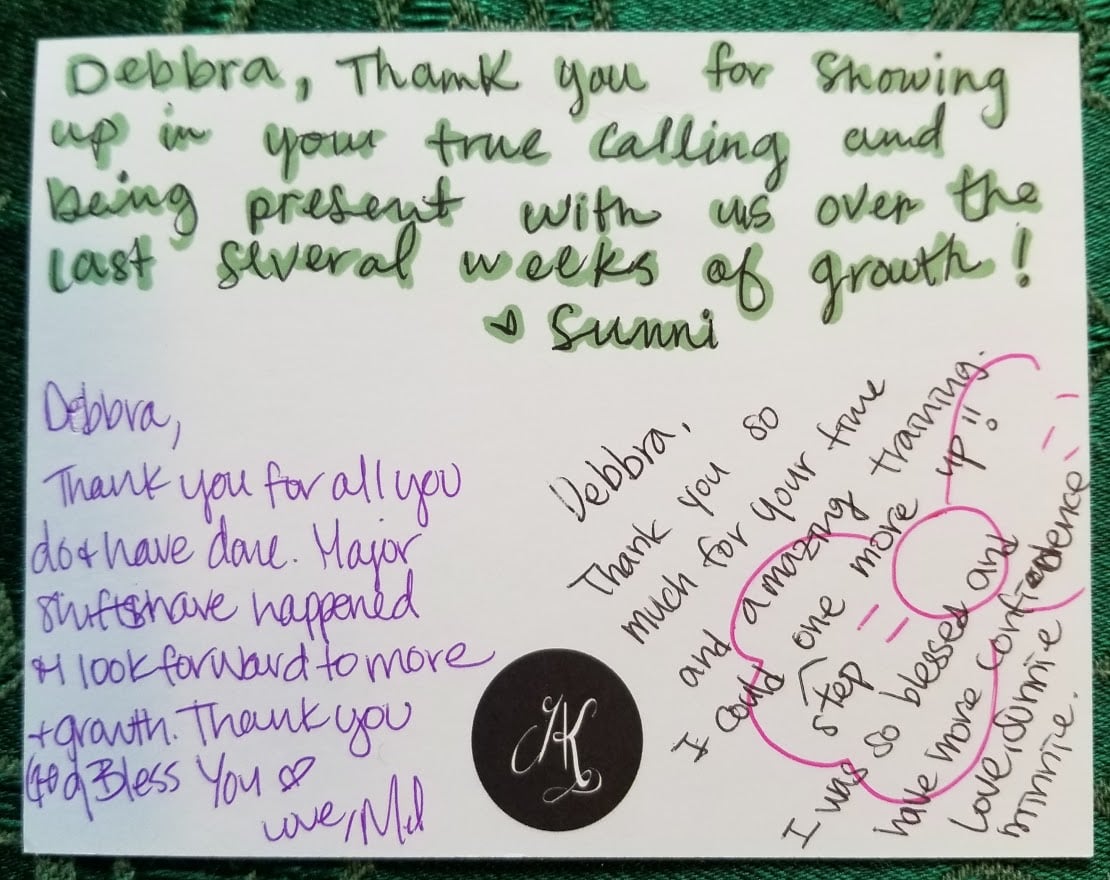 Debbra, Thank you for showing
up in your true calling and
being present with us over the
last several weeks of growth!
♥ Sunni
Debbra,
Thank you for all you
do & have done. Major
shifts have happened
& I look forward to more
+ growth. Thank you
God Bless You ♡
Love, Mel
Debbra,
Thank you so
much for your time
and amazing training.
I could step one more more up!!
I was so blessed and
have more confidence
Love,
minnie.
AK